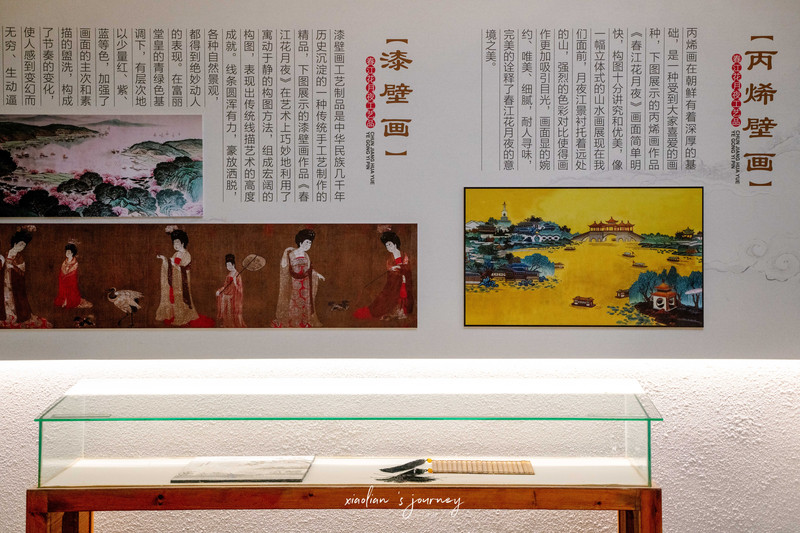 【丙烯壁画】
春江花月夜工艺品
CHUN JIANG HUA YUE
YE GONG YI PIN
丙烯画在朝鲜有着深厚的基
础，是一种受到大家喜爱的画
种，下图展示的丙烯画作品
《春江花月夜》画面简单明
快，构图十分讲究和优美，像
一幅立体式的山水画展现在我
们面前，月夜江景衬托着远处
的山，强烈的色彩对比使得画
作更加吸引目光，画面显的婉
约、唯美、细腻，耐人寻味，
完美的诠释了春江花月夜的意
境之美。
【漆壁画】
春江花月夜工艺品
CHUN JIANG HUA YUE
YE GONG YI PIN
漆壁画工艺制品是中华民族几千年
历史沉淀的一种传统手工艺制作的
精品，下图展示的漆壁画作品《春
江花月夜》在艺术上巧妙地利用了
寓动于静的构图方法，组成宏阔的
构图，表现出传统线描艺术的高度
成就。线条圆浑有力，豪放洒脱，
各种自然景观，
都得到绝妙动人
的表现。在富丽
堂皇的青绿色基
调下，有层次地
以少量红、紫、
蓝等色，加强了
画面的主次和素
描的盟洗，构成
了节奏的变化，
使人感到变幻而
无穷、生动逼
xiaolian's journey